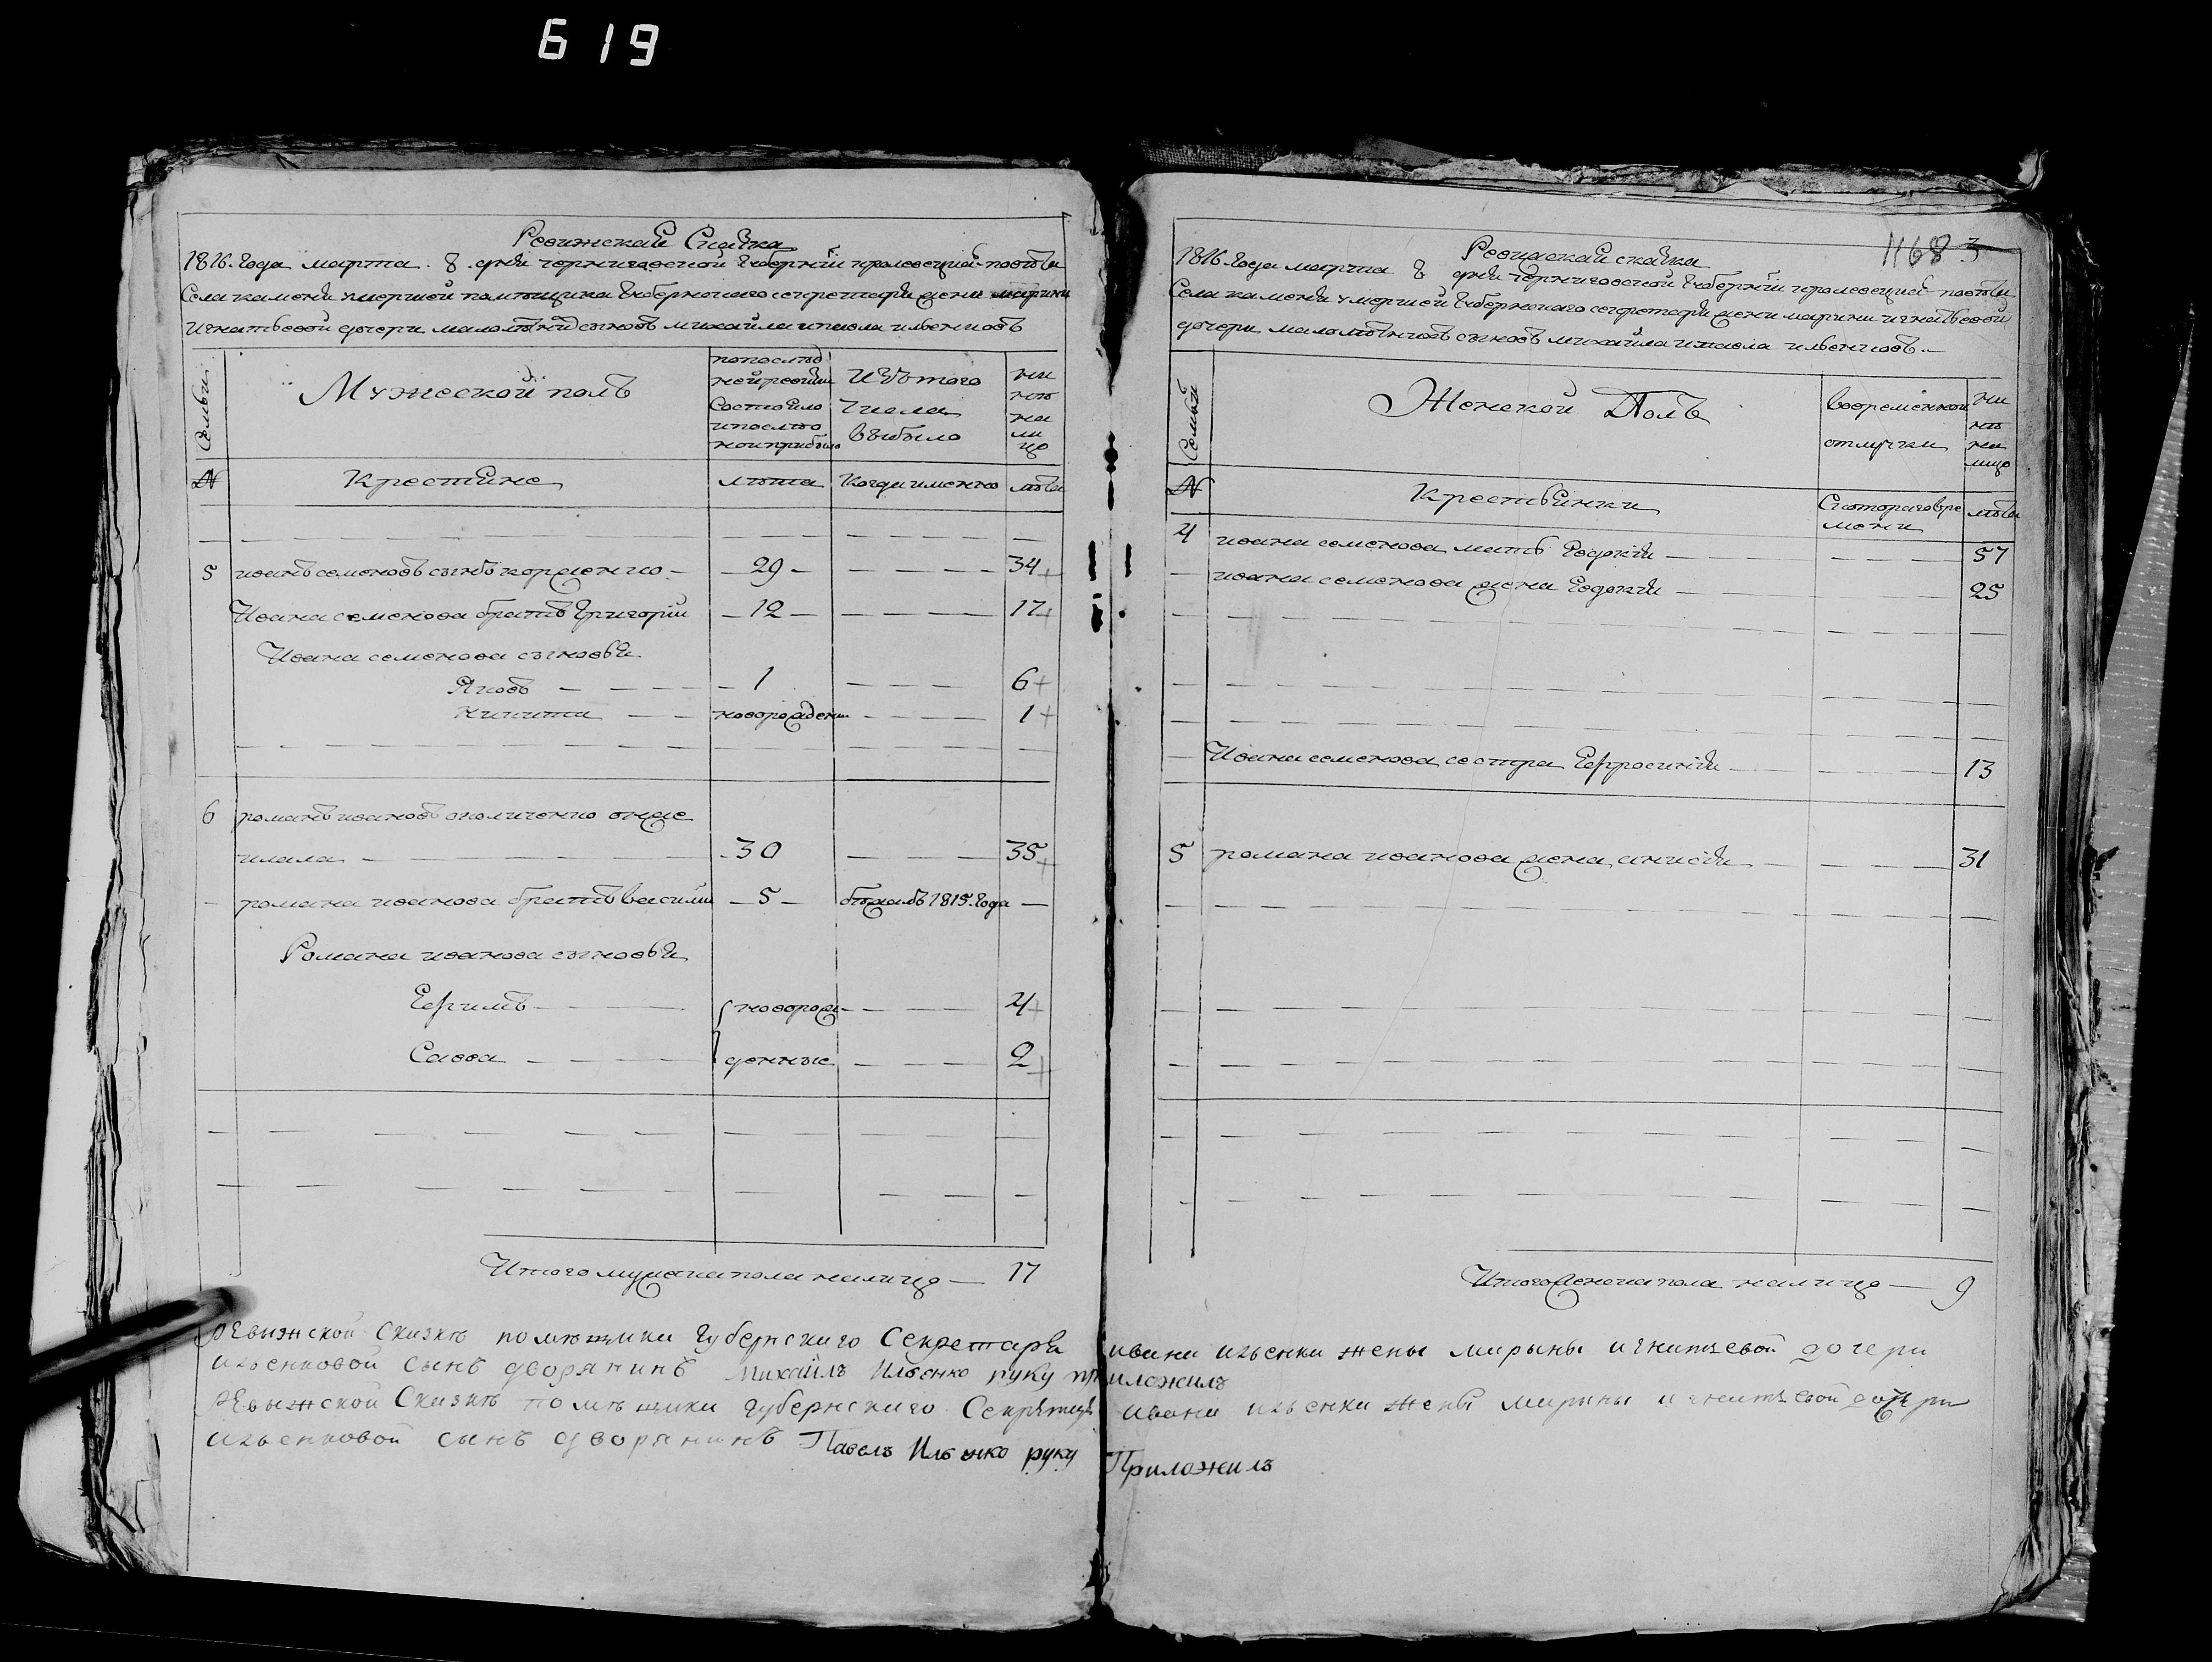 619
Ревижская Скаска
1816. Года марта. 8. дня черниговской Губернїи кролевецкой повѣта
Села каменя умершой помѣщика Губернскаго секретаря жени марини
Игнатьевой дочери малолѣтнїх сыновъ михайла ипавла ильенковъ
Семьи
Мужеской полъ
попослѣд
ней ревизии
Состояло
ипослѣ
ноиприбыло
Изътого
Числа
выбыло
ни
нѣ
на
ли
цо
№
Крестяне
лѣта
Когдаименно
лѣта
5 иванъ семеновъ сынъ корженко 29 34
Ивана семенова братъ Григорїи 12 17
Ивана семенова сыновья
Яковъ 1 6
никита новорожденн 1
6 романъ ивановъ
30 35
романа иванова братъ василии 5 бѣжалъ 1815. Года
Романа иванова сыновья
Ефимъ новорож 4
Савва денные 2
Итого мужеска пола налицо 17
1168 3
Ревижская скаска
1816. Года марта 8 дня черниговской Губернїи кролевецкой повѣта
Села каменя умершой Губернскаго секретаря жени марини игнатьевой
дочери малолѣтнихъ сыновъ михайла ипавла ильенковъ.
Семьи
Женской Полъ
вовременной
отлучки
ни
нѣ
на
лицо
№
Крестьянки
Скотораговре
мени
лѣта
4 ивана семенова мать Евдокїя 57
ивана семенова жена Евдокїя 25
Ивана семенова сестра Ефросинїя 13
5 романа иванова жена анисїя 31
Итого женска пола налицо 9
Ревыжской Сказкѣ помѣщики Губернскиго Секретаря ивана ильенка жены марыны игнатьевой дочери
ильенковой сынъ дворянинъ Михайлъ Ильенко руку приложилъ
Ревыжской Сказкѣ помѣщики Губернскиго ивана ильенка жены марины игнатьевой дочери
ильенковой сынъ дворянинъ Павелъ Ильенко руку Приложилъ